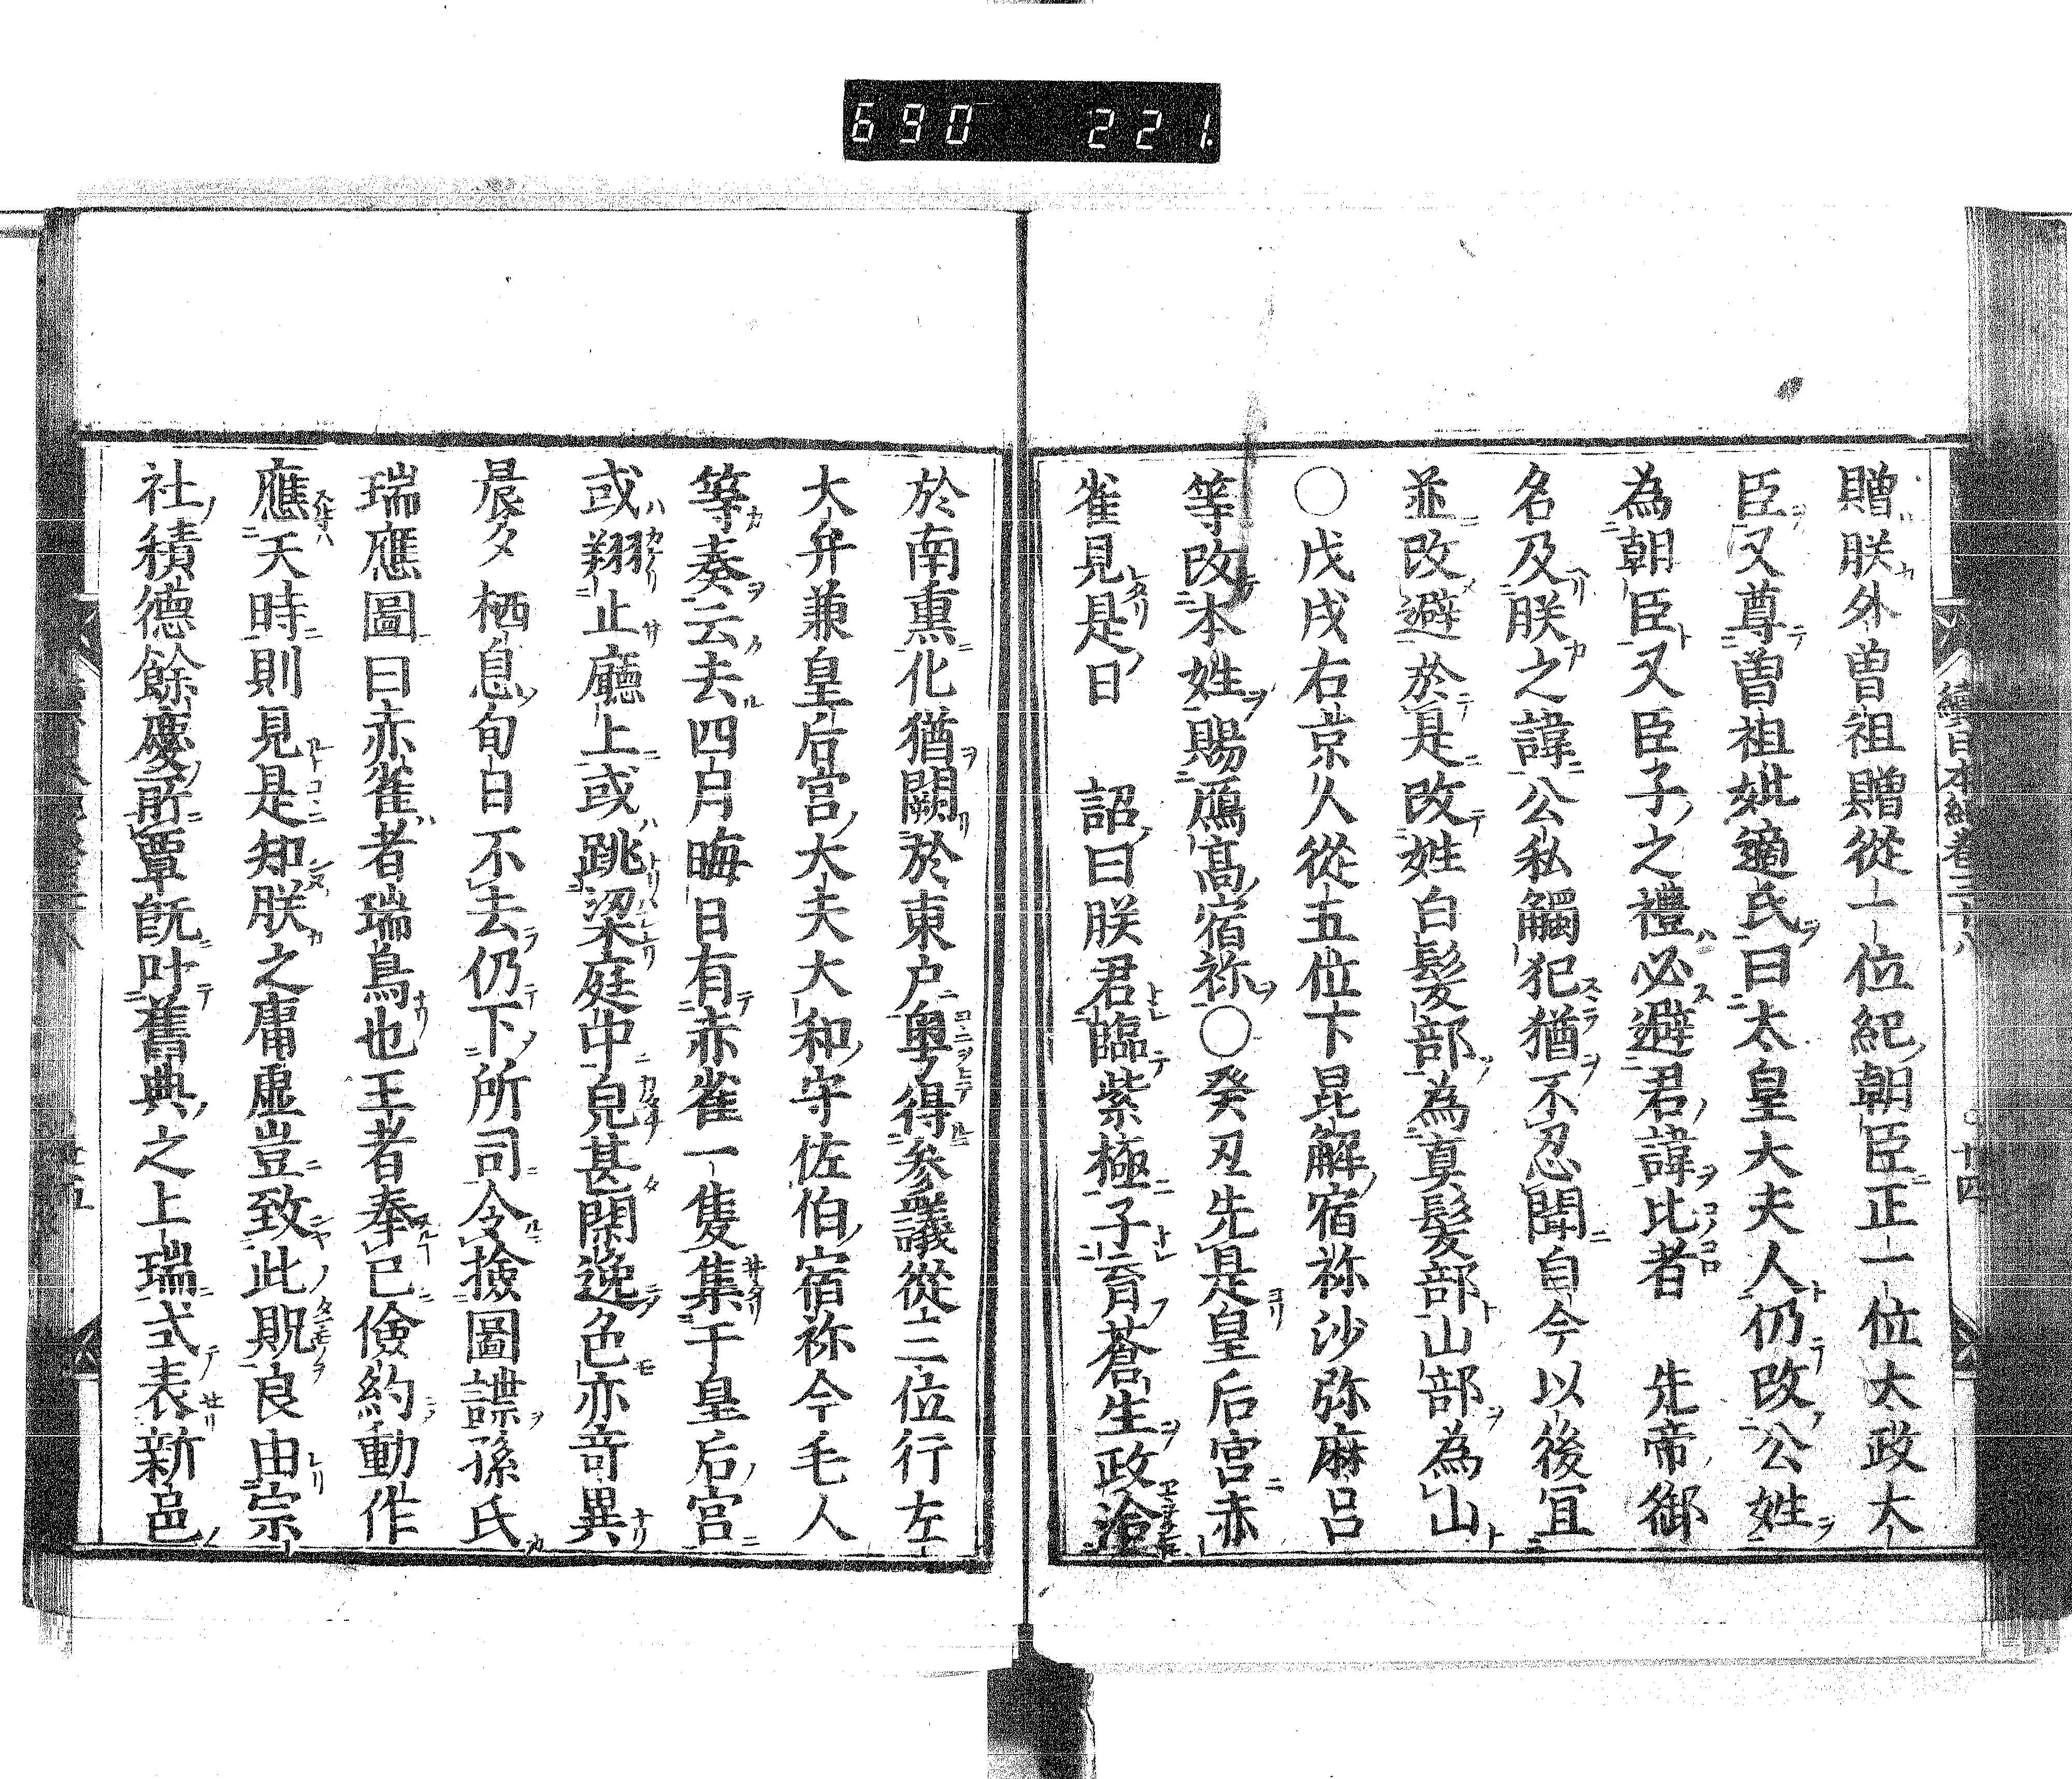 690 221.
贈朕外曾祖贈從一位紀朝臣正一位太政大
臣又尊曾祖妣適氏曰太皇大夫人仍改公姓
為朝臣又臣子之禮必避君諱比者 先帝御
名及朕之諱公私觸犯猶不忍聞自今以後冝
並改避於是改姓白髮部為真髮部山部為山
○戊戌右京人從五位下昆解宿祢沙弥麻呂
等改本姓賜鴈高宿祢○癸丑先是皇后宮赤
雀見是日 詔曰朕君臨紫極子育蒼生政
於南熏化猶闕於東户粤得參議從三位行左
大弁兼皇后宮大夫大和守佐伯宿祢今毛人
等奏云去四月晦日有赤雀一隻集于皇后宮
或翔止廳上或跳梁庭中皃甚閑逸色亦奇異
晨夕栖息旬日不去仍下所司令撿圖諜孫氏
瑞應圖曰赤雀者瑞鳥也王者奉已儉約動作
應天時則見是知朕之庸虚豈致此貺良由宗
社積德餘慶所覃旣叶舊典之上瑞式表新邑